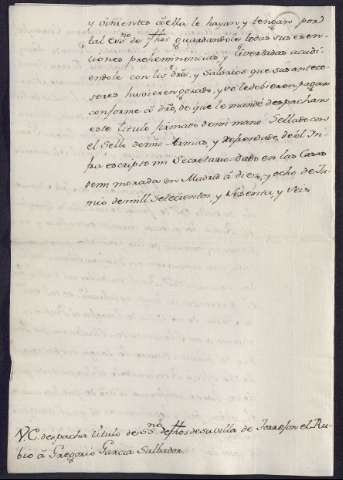 y vivientes en ella le hayan, y tengan por
tal essno. de fhos guardandole todas sus exen-
ciones preheminencias y livertades acudi-
endole con los dros. y Salarios que sus antece-
sores huvieren gozado, y se le debieren pagar
conforme á dro. de que le mandé despachar
este titulo firmado de mi mano Sellado con
el Sello de mis Armas, y refrendado del In-
fraescripto mi Secretario. Dado en las Casas
de mi morada en Madrid á diez, y ocho de Ju-
nio de mill Setecientos, y Sesenta, y Seis
V.E. despacha titulo de essno. de fhos de su villa de Torrejon el Ru-
bio á Gregorio Garcia Sallador